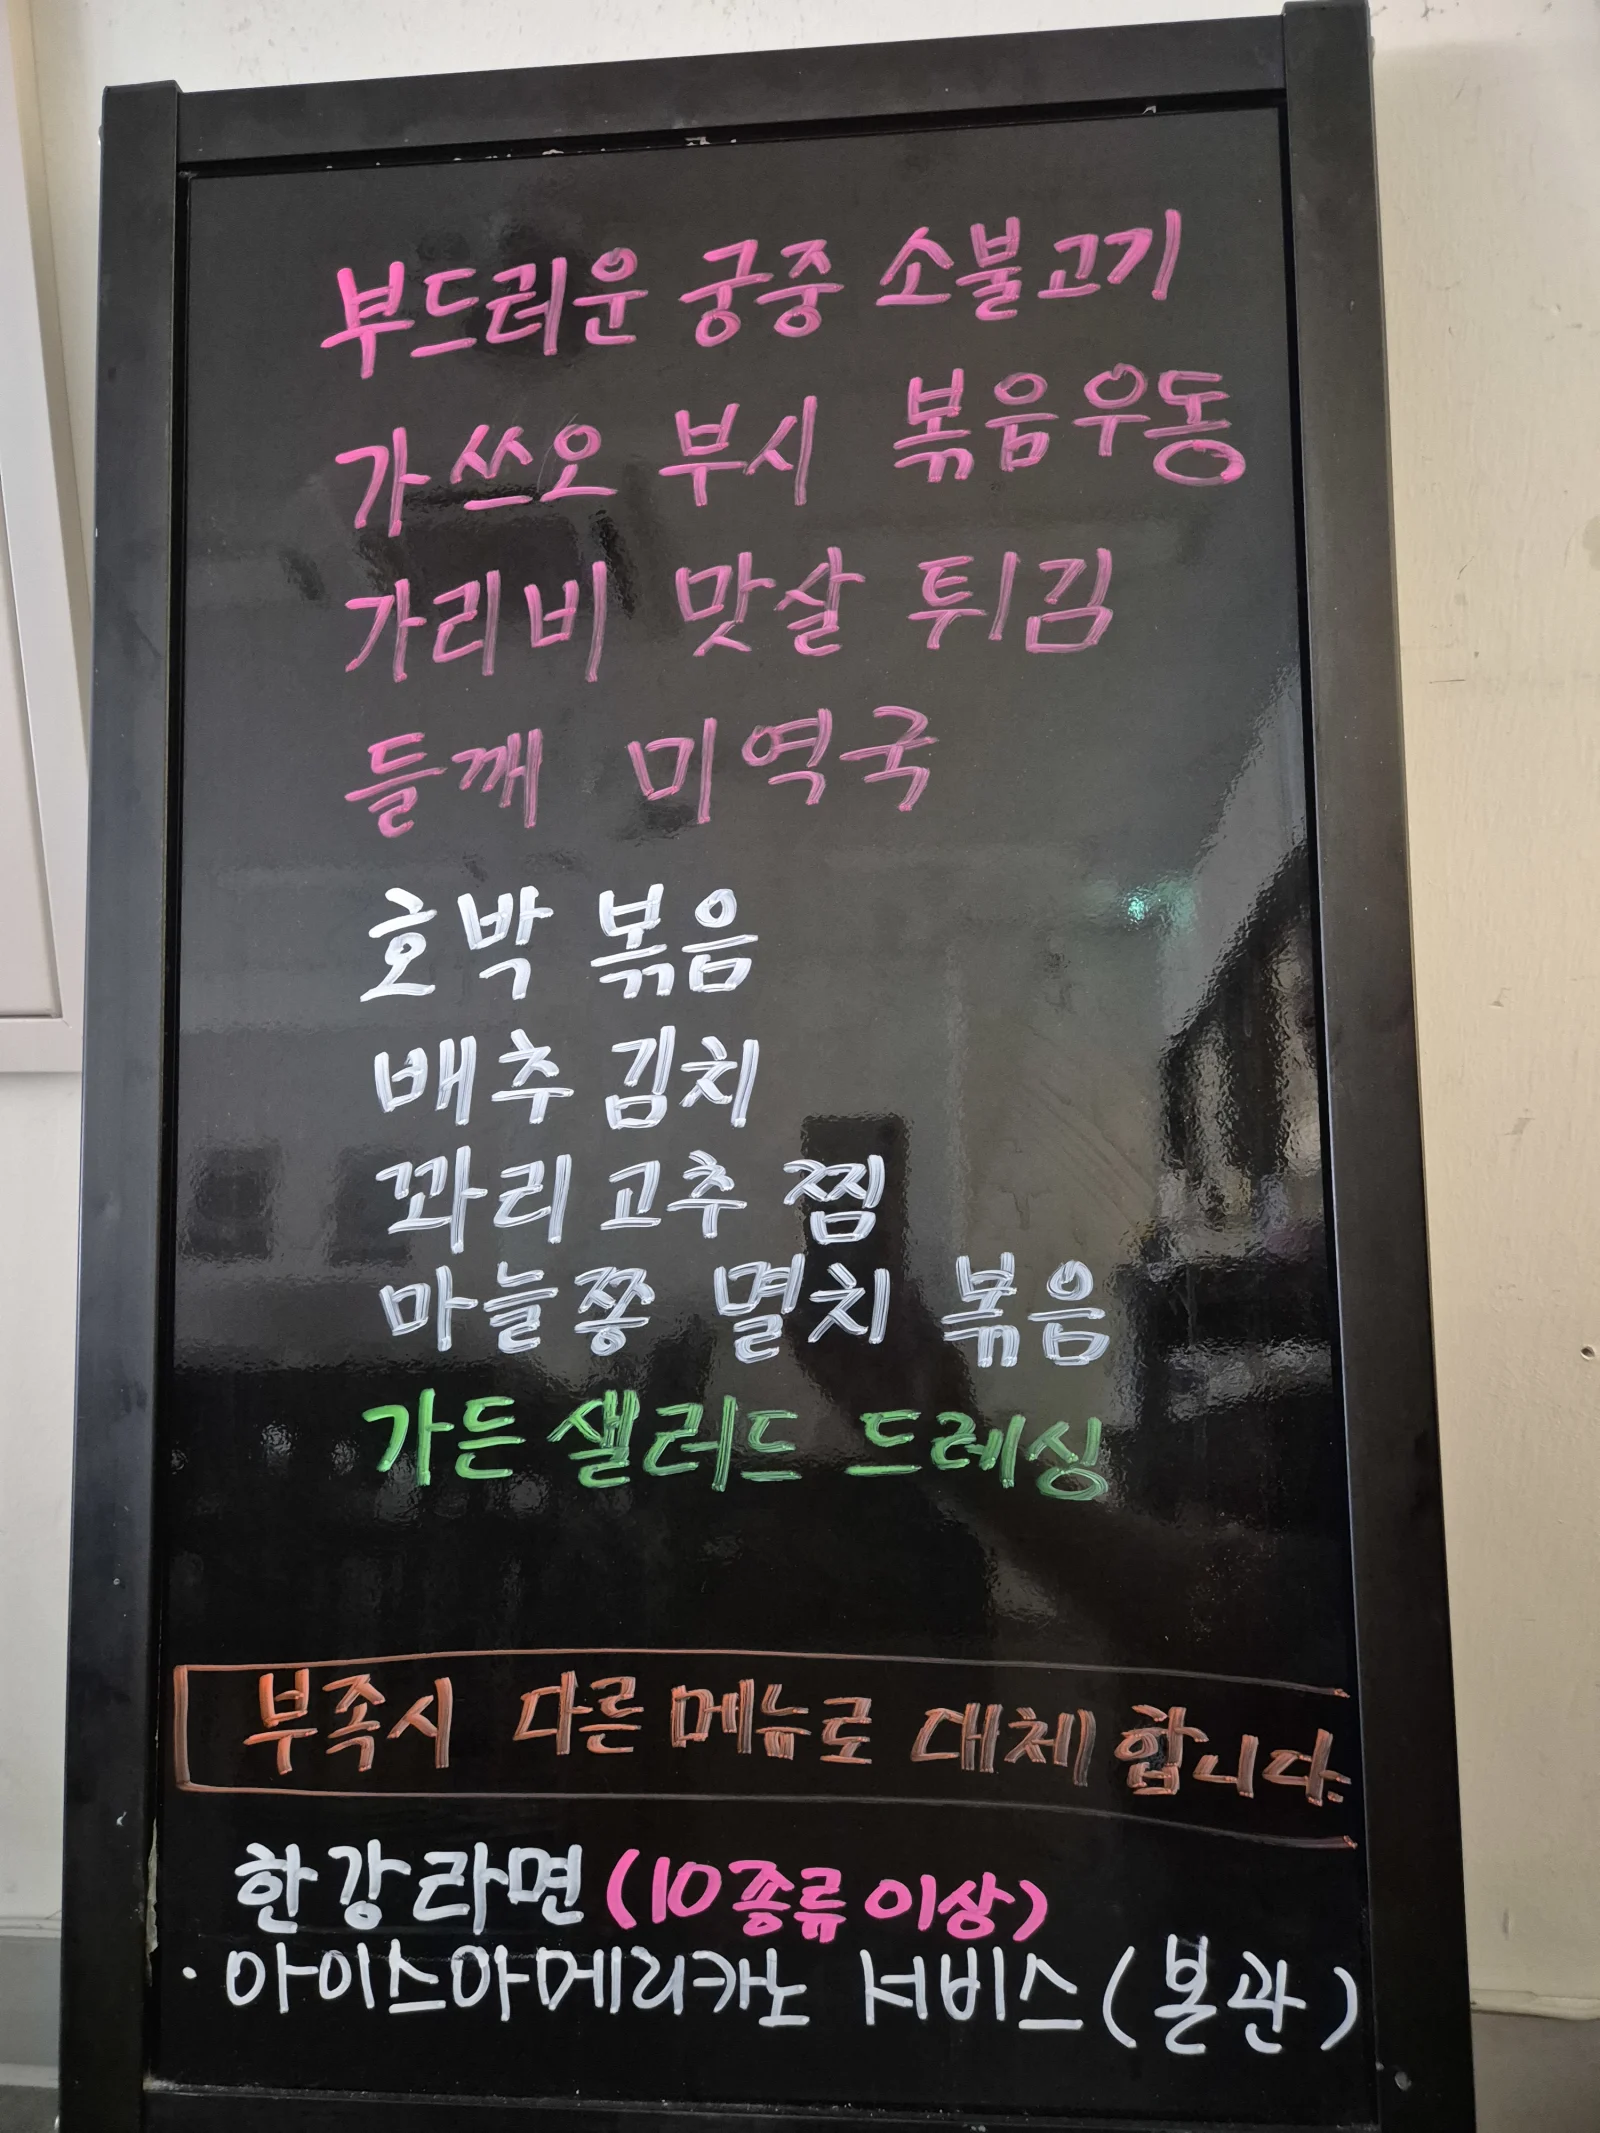 부드러운 궁중 소불고기
가쓰오 부시 볶음우동
가리비 맛살 튀김
들깨 미역국
호박 볶음
배추 김치
꽈리 고추 찜
마늘쫑 멸치 볶음
가든 샐러드 드레싱
부족시 다른 메뉴로 대체 합니다.
한강라면 (10종류 이상)
· 아이스아메리카노 서비스 (본관)